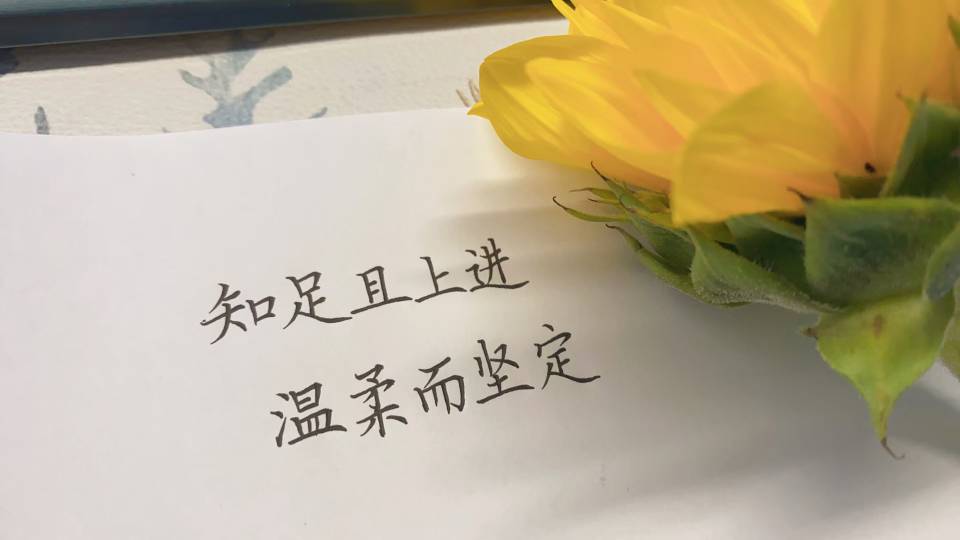 知足且上进
温柔而坚定